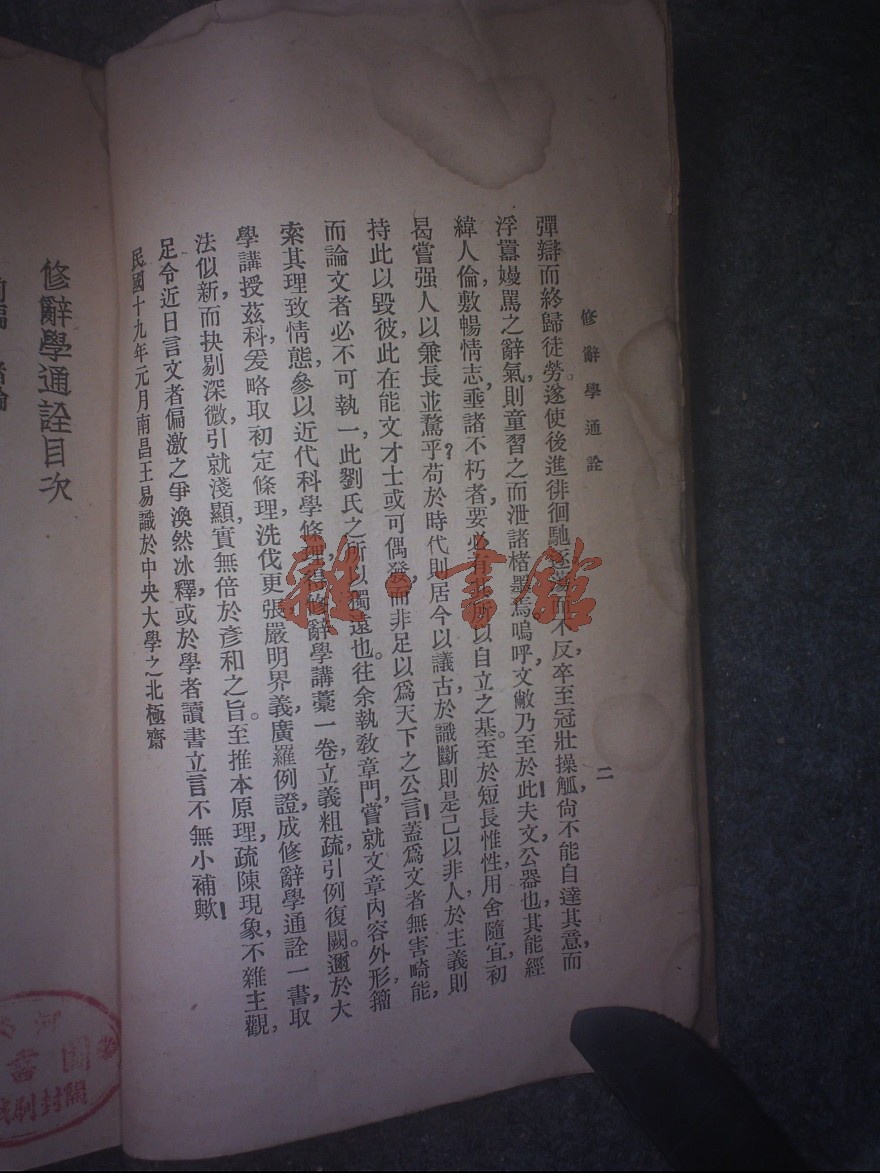 修辭學通詮
二
彈辯而終歸徒勞。遂使後進徘徊馳逐而不反,卒至冠壯操觚,尙不能自達其意,而
浮囂嫚罵之辭氣,則童習之而泄諸楮墨焉。嗚呼,文敝乃至於此!夫文公器也,其能經
緯人倫,敷暢情志,垂諸不朽者,要必有其所以自立之基。至於短長惟性,用舍隨宜,初
曷嘗强人以兼長並鶩乎?苟於時代則居今以議古,於識斷則是己以非人,於主義則
持此以毀彼,此在能文才士或可偶發,而非足以爲天下之公言!蓋爲文者無害畸能,
而論文者必不可執一,此劉氏之所以獨遠也。往余執敎章門,嘗就文章內容外形,籀
索其理致情態,參以近代科學條理,得修辭學講藁一卷,立義粗疏,引例復闕。邇於大
學講授茲科,爰略取初定條理,洗伐更張,嚴明界義,廣羅例證,成修辭學通詮一書,取
法似新,而抉剔深微,引就淺顯,實無倍於彥和之旨。至推本原理,疏陳現象,不雜主觀,
足令近日言文者偏激之爭渙然冰釋,或於學者讀書立言不無小補歟!
民國十九年元月南昌王易識於中央大學之北極齋
修辭學通詮目次
雜·書館
開封